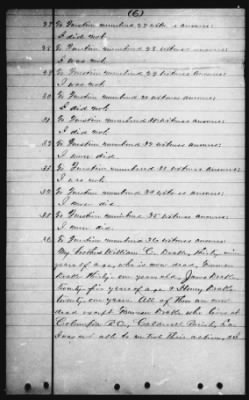 (6)
27 To Question numbered 27 witness answers:
I did not.
28 To Question numbered 28 witness answers:
I was not.
29 To Question numbered 29 witness answers:
I did not.
30 To Question numbered 30 witness answers:
I did not.
31 To Question numbered 31 witness answers:
I did not.
32 To Question numbered 32 witness answers:
I never did.
33 To Question numbered 33 witness answers:
I was not.
34 To Question numbered 34 witness answers:
I never did.
35 To Question numbered 35 witness answers:
I never did.
36 To Question numbered 36 witness answers:
My brothers William C. Drake, thirty-six
years of age, who is now dead, Furman
Drake thirty-one years old, James Drake
twenty-five years of age & Henry Drake
twenty-one years. All of them are now
dead except Furman Drake who lives at
Columbia P.O., Caldwell Parish, La.
I was not able to control their actions, as I